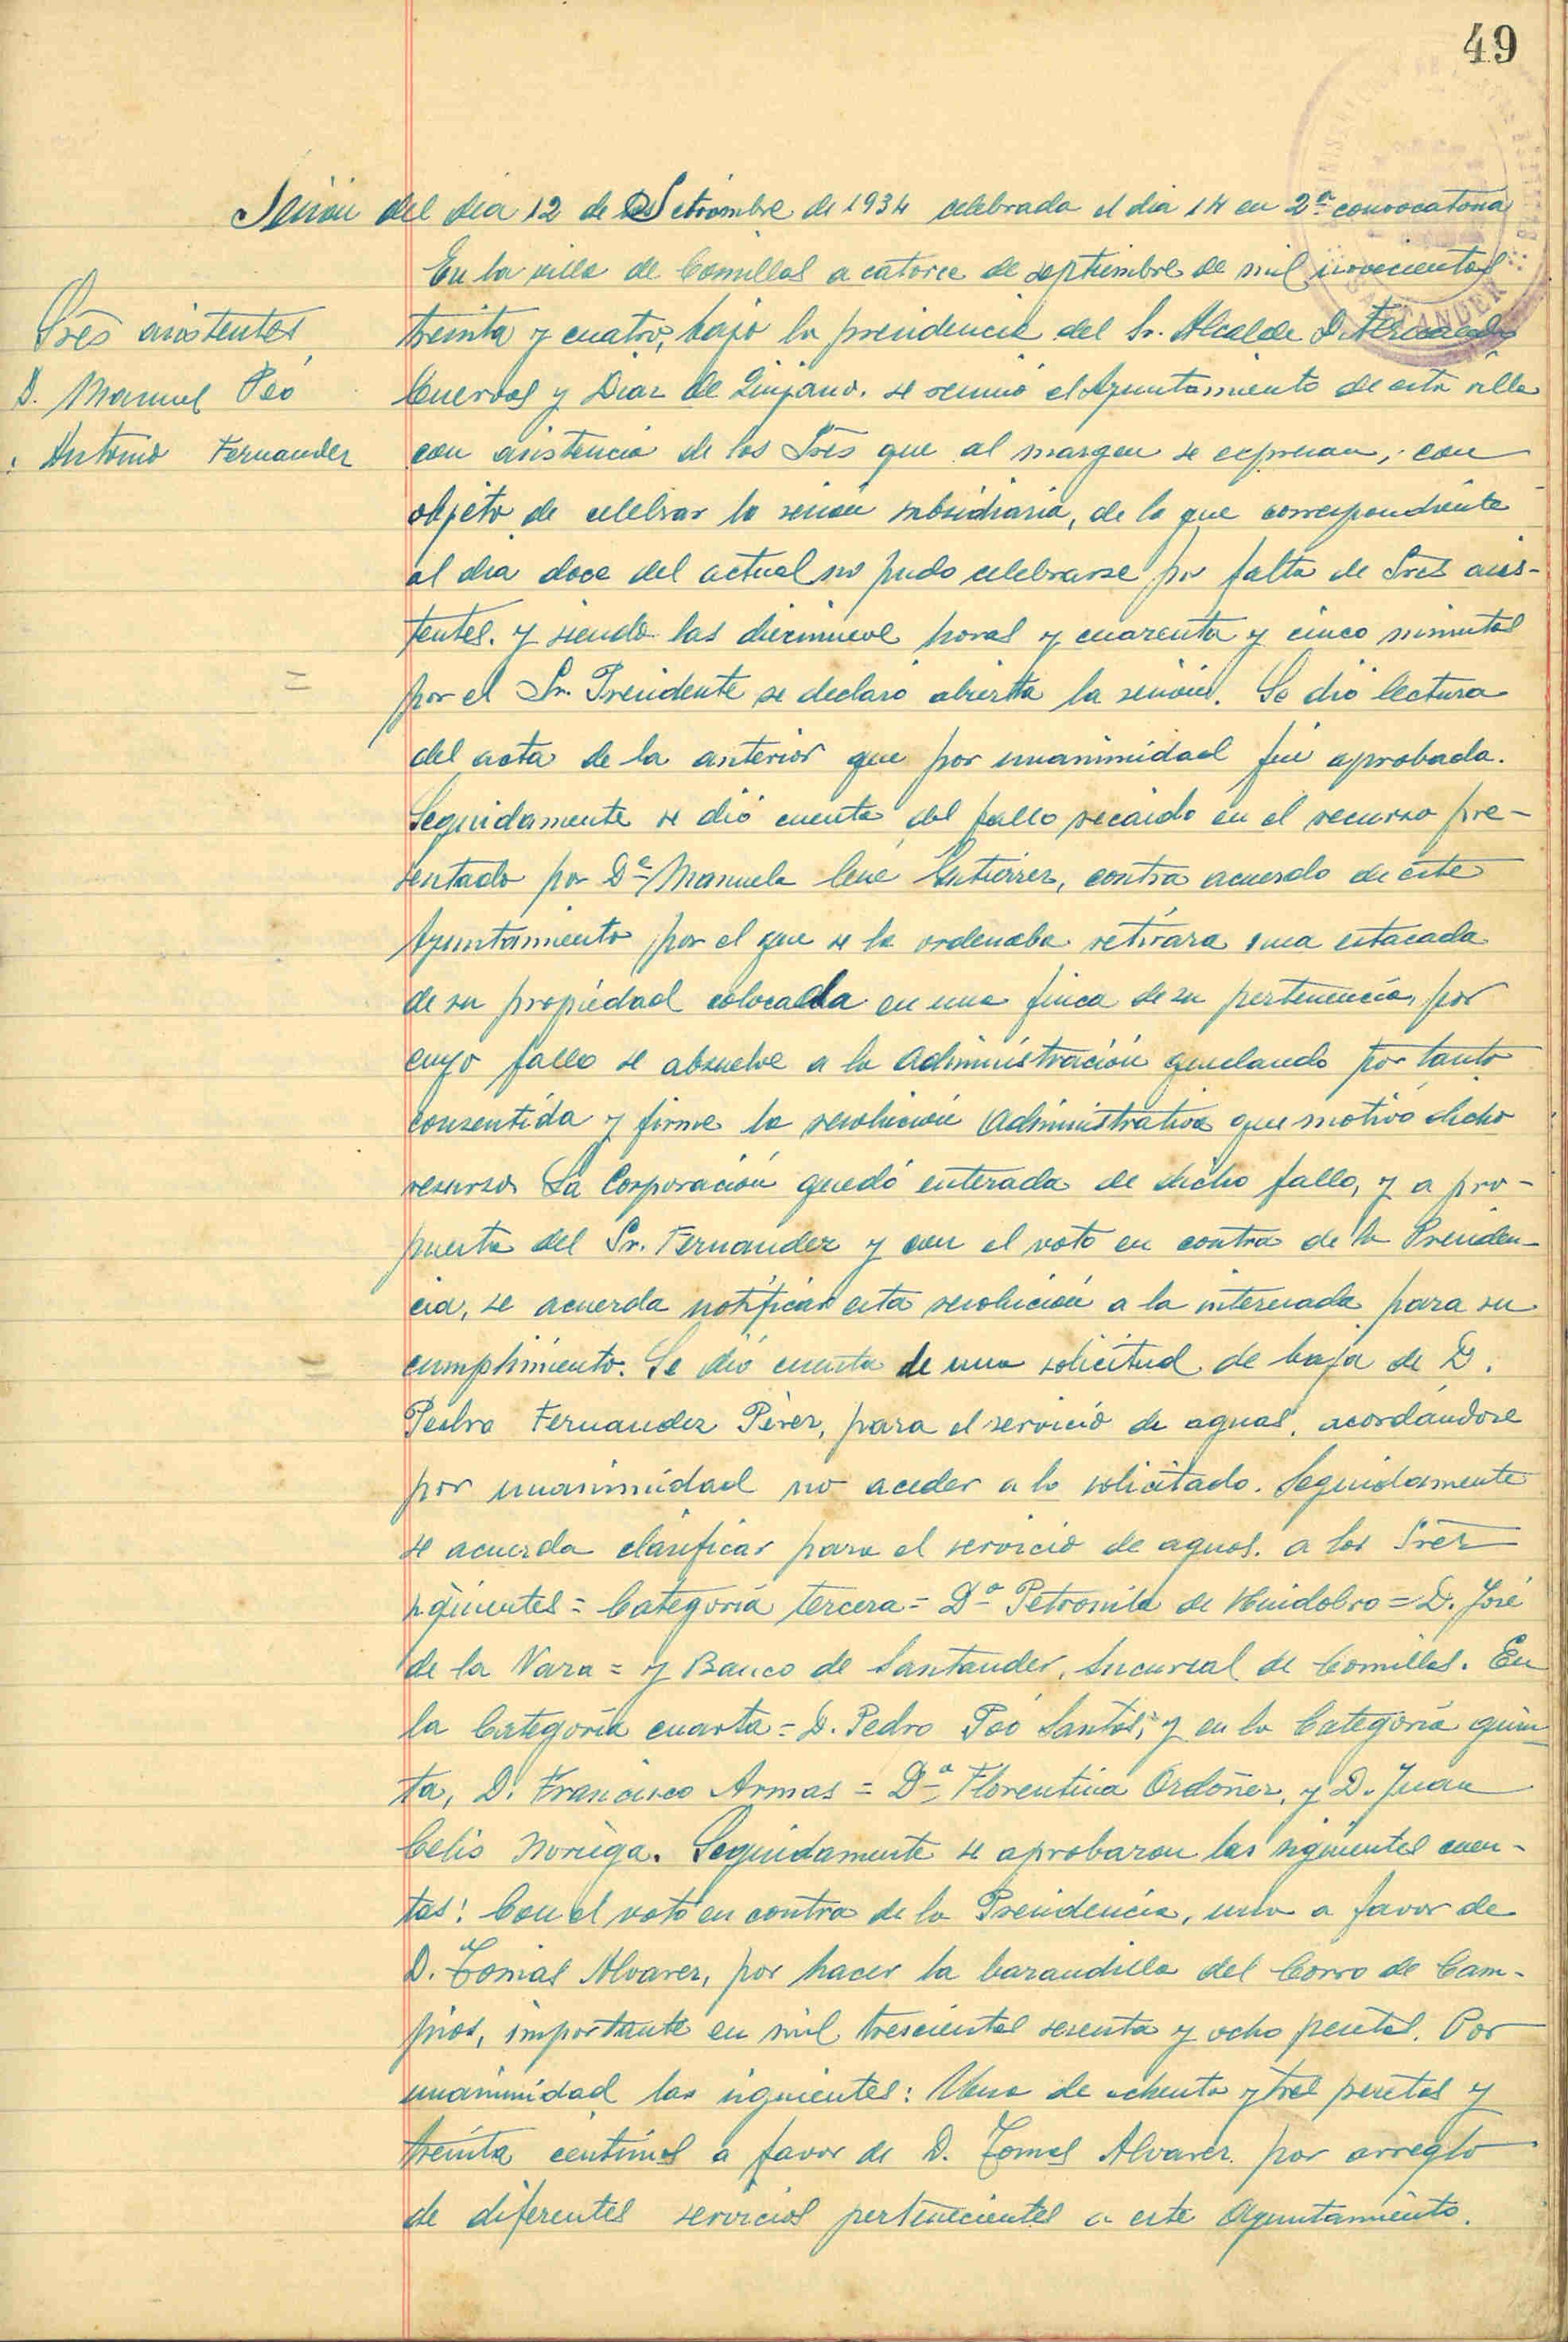 49
Sesión del día 12 de Setiembre de 1934 celebrada el dia 14 en 2ª convocatoria
En la villa de Comillas a catorce de septiembre de mil novecientos
Sres asistentes
treinta y cuatro, bajo la presidencia del Sr. Alcalde D. Fernando
D. Manuel Poo
Cuevas y Diaz de Quijano. se reunió el Ayuntamiento de esta villa
Antonio Fernandez
con asistencia de los Sres que al margen se expresan, con
objeto de celebrar la sesión subsidiaria, de la que correspondiente
al dia doce del actual no pudo celebrarse por falta de Sres asis-
tentes. y siendo las diecinueve horas y cuarenta y cinco minutos
por el Sr. Presidente se declaró abierta la sesión. Se dió lectura
del acta de la anterior que por unanimidad fué aprobada.
Seguidamente se dió cuenta del fallo recaido en el recurso pre-
sentado por Dª Manuela Cué Gutierrez, contra acuerdo de este
Ayuntamiento por el que se la ordenaba retirara una estacada
de su propiedad colocada en una finca de su pertenencia, por
cuyo fallo se absuelve a la Administración quedando por tanto
consentida y firme la resolución Administrativa que motivó dicho
recurso La Corporación quedó enterada de dicho fallo, y a pro-
puesta del Sr. Fernandez y con el voto en contra de la Presiden-
cia, se acuerda notificar esta resolución a la interesada para su
cumplimiento. Se dió cuenta de una solicitud de baja de D.
Pedro Fernandez Pérez, para el servicio de aguas, acordándose
por unanimidad no aceder a lo solicitado. Seguidamente
se acuerda clasificar para el servicio de aguas. a los Sres
siguientes = Categoria tercera = Dª Petronila de Huidobro = D. José
de la Vara = y Banco de Santander, Sucursal de Comillas. En
la Categoria cuarta = D. Pedro Poo Santos, y en la Categoria quin-
ta, D. Francisco Armas = Dª Florentina Ordoñez, y D. Juan
Celis Noriega. Seguidamente se aprobaron las siguientes cuen-
tas: Con el voto en contra de la Presidencia, una a favor de
D. Tomas Alvarez, por hacer la barandilla del Corro de Cam-
pios, importante en mil trescientas sesenta y ocho pesetas. Por
unanimidad las siguientes: Una de ochenta y tres pesetas y
treinta centimos a favor de D. Tomas Alvarez por arreglo
de diferentes servicios pertenecientes a este Ayuntamiento.